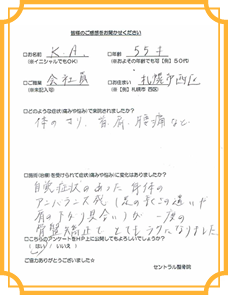 皆様のご感想をお聞かせください
□お名前 K.A. □年齢 55才
(※イニシャルでもOK) (※およその年齢でも可【例】50代)
□ご職業 会社員 □お住まい 札幌市西区
(※未記入可) (※【例】札幌市 西区)
□どのような症状(痛みや悩み)で来院されましたか?
体のコリ、首、肩、腰痛など
□施術(治療)を受けられて症状(痛みや悩み)に変化はありましたか?
自覚症状のあった身体の
アンバランス感(足の長さの違いや
肩の下がり具合)が一度の
骨盤矯正でとてもラクになりました。
□こちらのアンケートをHP上に公開してもよろしいでしょうか?
(はい / いいえ)
ご協力ありがとうございました☆
セントラル整骨院